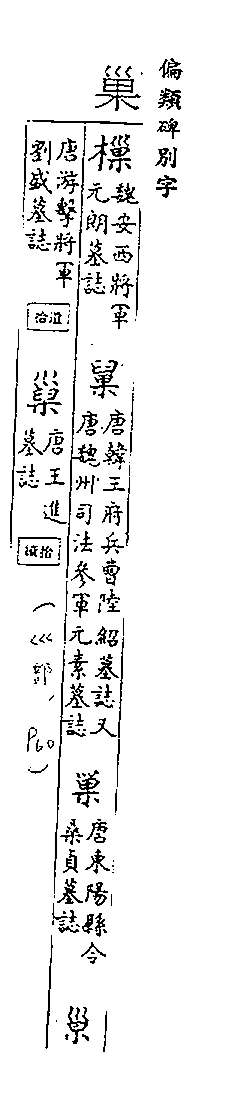 偏類碑別字
巢
樔 魏安西將軍元朗墓誌
唐韓王府兵曹陸紹墓誌又唐魏州司法參軍元素墓誌
唐東陽縣令桑貞墓誌
唐游擊將軍劉盛墓誌
唐王進墓誌
(巛部,P60)